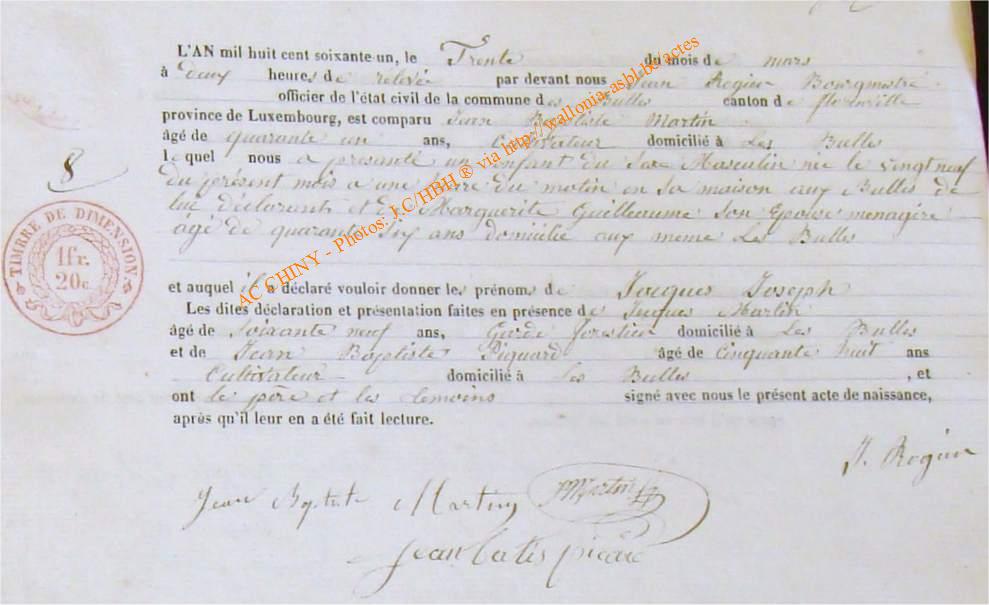 L'AN mil huit cent soixante-un, le Trente du mois de mars
à deux heures de relevée par devant nous Jean Rogier Bourgmestre
officier de l'état civil de la commune des Bulles canton de florenville
province de Luxembourg, est comparu Jean Baptiste Martin
âgé de quarante un ans, Cultivateur domicilié à Les Bulles
lequel nous a présenté un enfant du Sexe Masculin née le vingt neuf
du présent mois a une heure du matin en sa maison aux Bulles de
lui déclarant et de Marguerite Guilleaume son Epouse menagère
âgé de quarante six ans domicilié aux meme Les Bulles
et auquel il a déclaré vouloir donner les prénoms de Jacques Joseph
Les dites déclaration et présentation faites en présence de Jacques Martin
âgé de Soixante neuf ans, Garde forestier domicilié à Les Bulles
et de Jean Baptiste Piquard âgé de Cinquante huit ans
Cultivateur domicilié à Les Bulles , et
ont le père et les temoins signé avec nous le présent acte de naissance,
après qu'il leur en a été fait lecture.
8
TIMBRE DE DIMENSION
1fr.
20c.
AC CHINY - Photos: J.C/HBH ® via http://wallonia-asbl.be/actes
J. Rogier
Jean Baptiste Martin JMartin
Jean batis picare